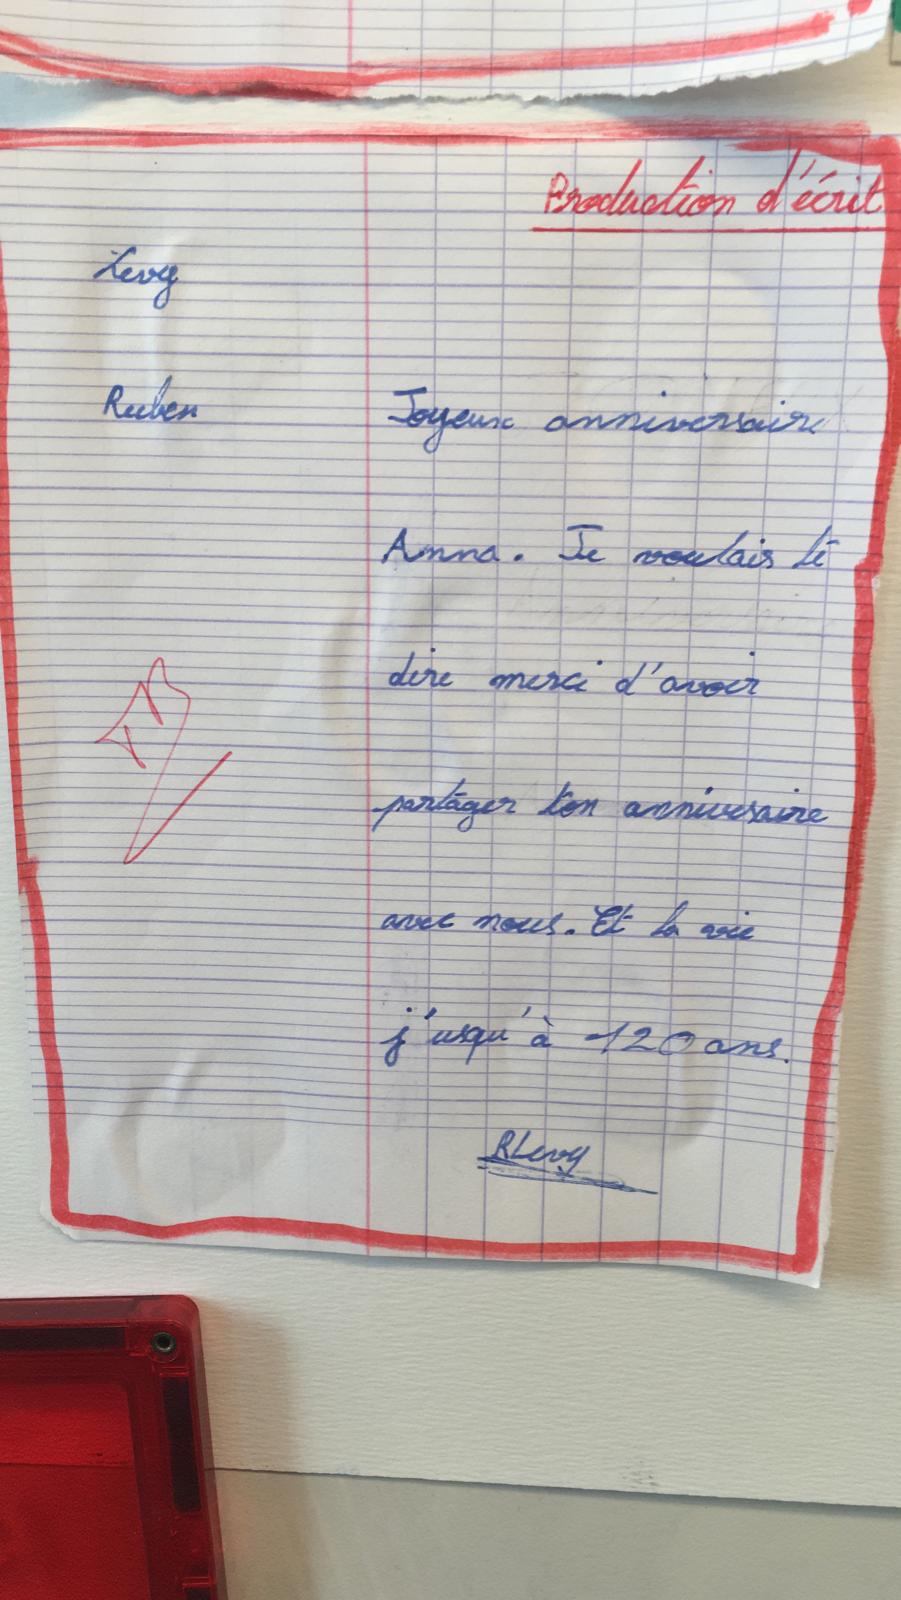 Production d'écrit
Levy
Ruben
Joyeux anniversaire
Anna. Je voulais te
dire merci d'avoir
partager ton anniversaire
avec nous. Et la vie
j'usqu'à 120 ans.
RLevy